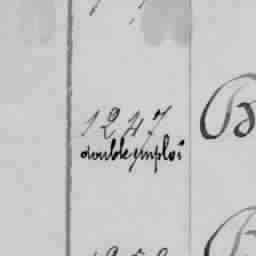 1247
double emploi
B